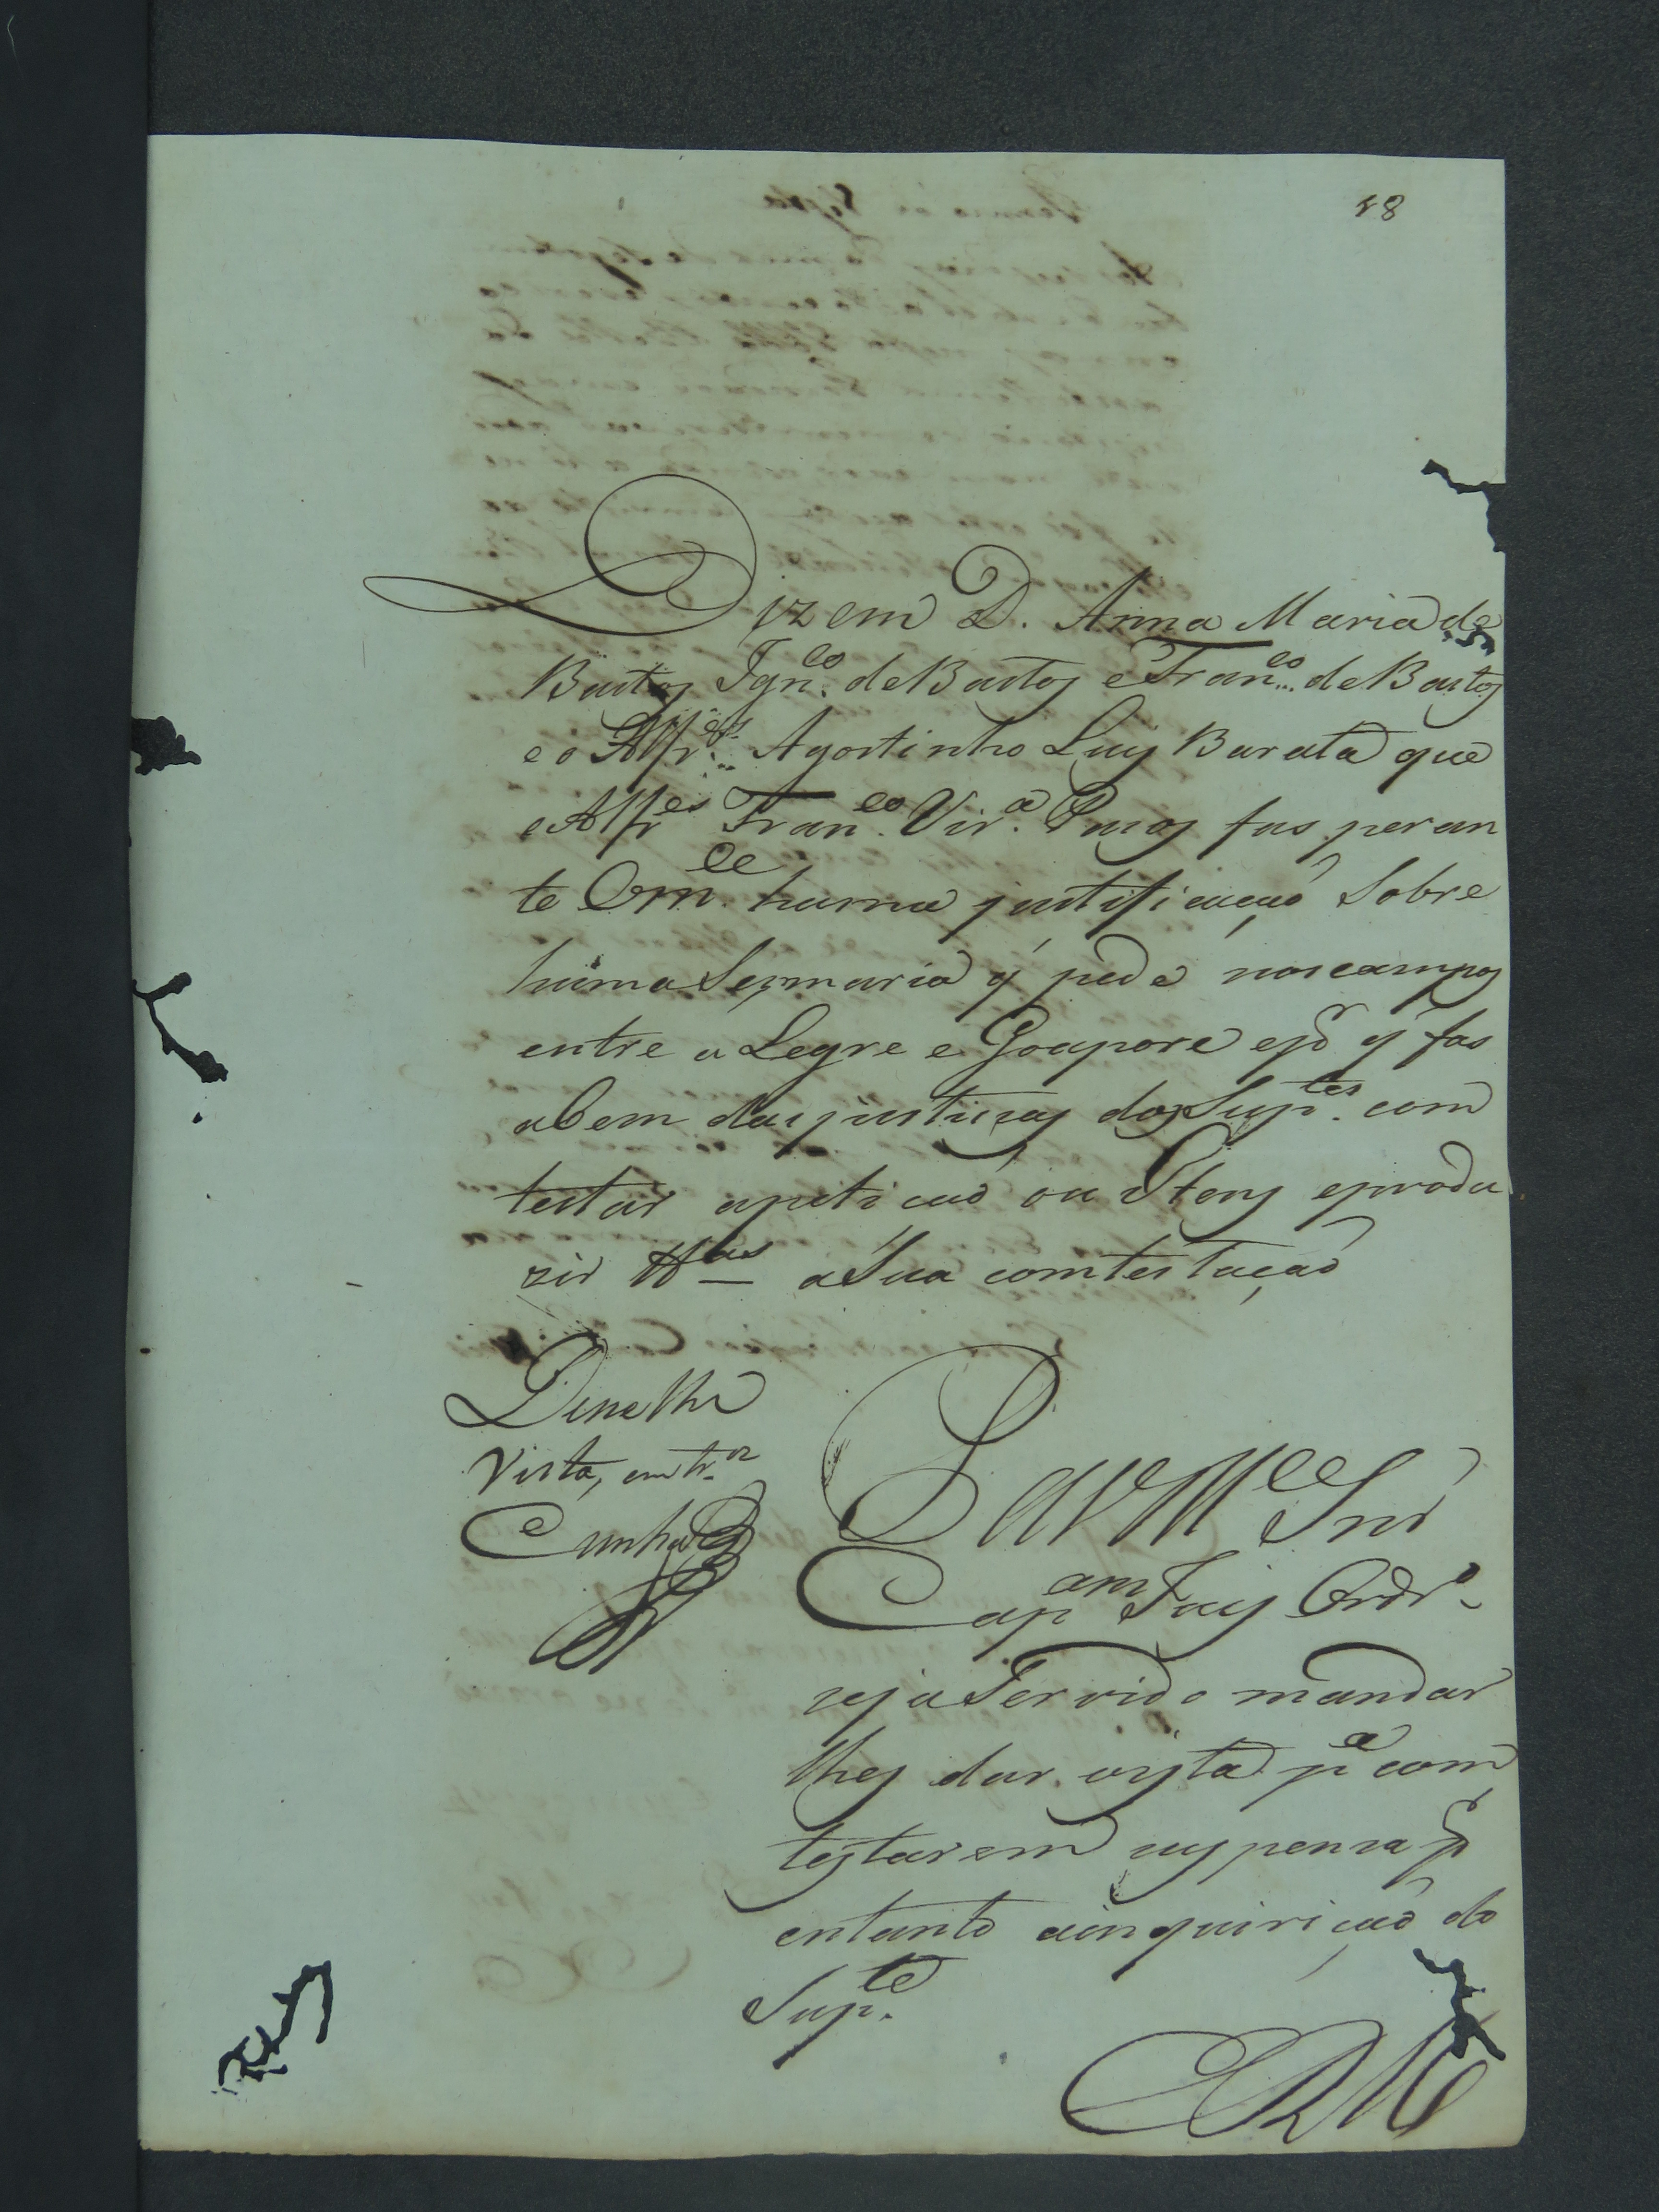 18
Dizem D. Anna Maria de
Bastos Ign.co de Bastos e Fran.co de Bastos
e o Alfr.es Agostinho Luis Barata que
o Alfr.es Fran.co Vir.a fas peran
te Vm.ce huma justificação Sobre
huma Sesmaria q̃ pede nos campos
entre aLegre e Goapore e q̃ fas
abem das justiças dos Sup.tes com
testar apetição ou Itens eprodu
zir tt.as aSua comtestação
Dese lhe
Vista, em tr.os
Cunha
P. a VM.ce Snr
Cap.am Juis Ordr.o
seja Servido mandar
lhes dar vista p.a com
testarem suspensa p
entanto ainquirição do
Sup.te
E R M